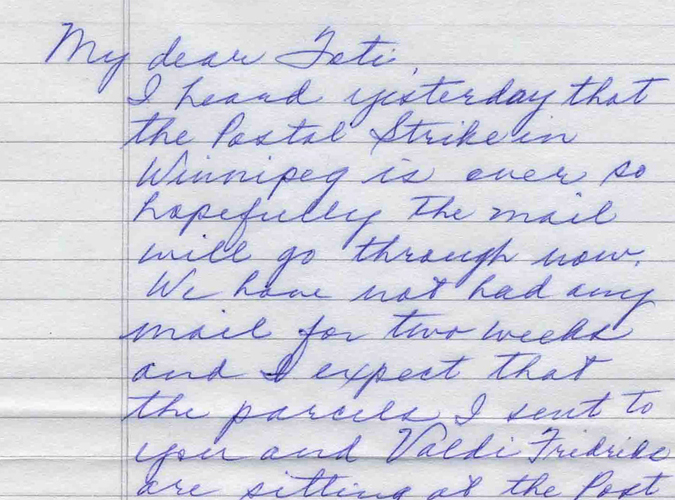 My dear Toti,
I heard yesterday that
the Postal Strike in
Winnipeg is over so
hopefully the mail
will go through now.
We have not had any
mail for two weeks
and I expect that
the parcels I sent to
you and Valdi Fredrike
are sitting at the Post